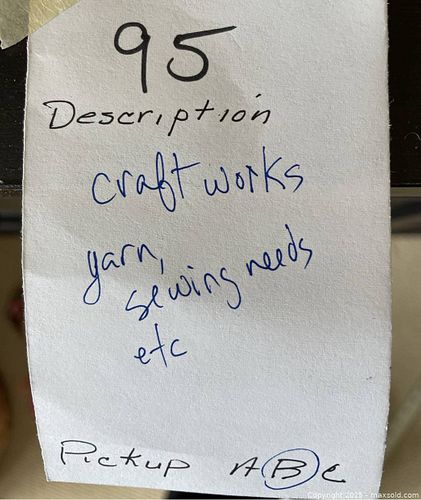 95
Description
craft works
yarn,
sewing needs
etc
Pickup A B C
Copyright 2025 - maxsold.com